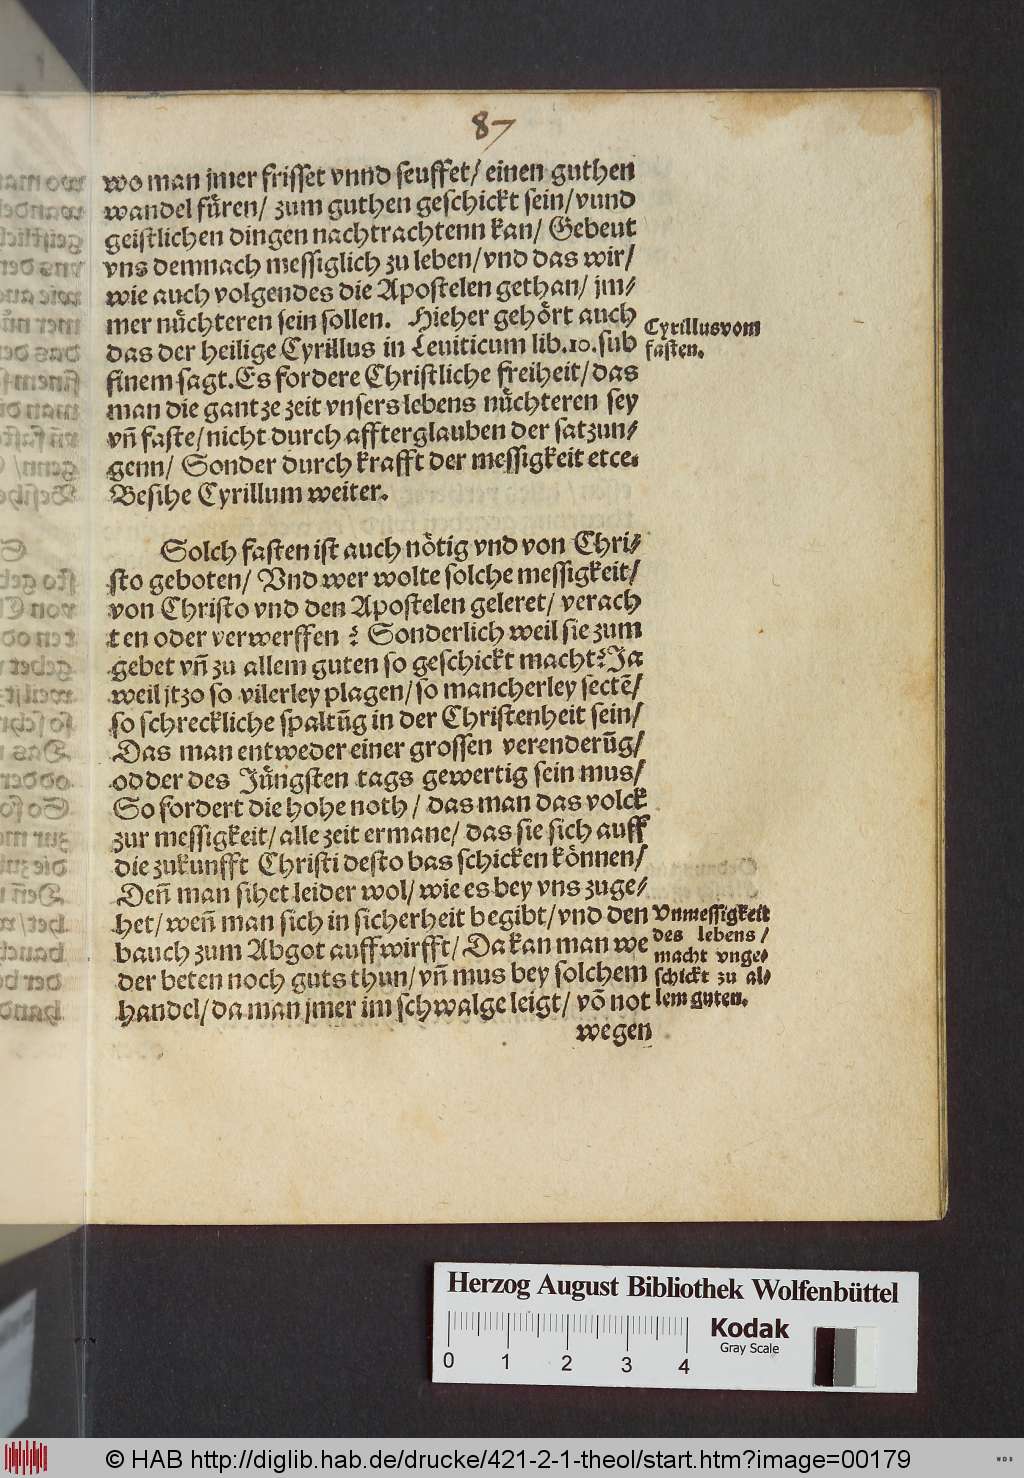 87
wo man jmer frisset vnnd seuffet/ einen guthen
wandel füren/ zum guthen geschickt sein/ vund
geistlichen dingen nachtrachtenn kan/ Gebeut
vns demnach messiglich zu leben/ vnd das wir/
wie auch volgendes die Apostelen gethan/ jm-
mer nüchteren sein sollen. Hieher gehört auch
das der heilige Cyrillus in Leuiticum lib.10.sub
finem sagt. Es fordere Christliche freiheit/ das
man die gantze zeit vnsers lebens nüchteren sey
vñ faste/ nicht durch affterglauben der satzun-
genn/ Sonder durch krafft der messigkeit etce.
Besihe Cyrillum weiter.
Cyrillus vom
fasten.
Solch fasten ist auch nötig vnd von Chri-
sto geboten/ Vnd wer wolte solche messigkeit/
von Christo vnd den Apostelen geleret/ verach
ten oder verwerffen ? Sonderlich weil sie zum
gebet vñ zu allem guten so geschickt macht? Ja
weil jtzo so vilerley plagen/ so mancherley sectē/
so schreckliche spaltūg in der Christenheit sein/
Das man entweder einer grossen verenderūg/
odder des Jüngsten tags gewertig sein mus/
So fordert die hohe noth/ das man das volck
zur messigkeit/ alle zeit ermane/ das sie sich auff
die zukunfft Christi desto bas schicken können/
Deñ man sihet leider wol/ wie es bey vns zuge-
het/ weñ man sich in sicherheit begibt/ vnd den
bauch zum Abgot auffwirfft/ Da kan man we
der beten noch guts thun/ vñ mus bey solchem
handel/ da man jmer im schwalge leigt/ vō not
wegen
Vnmessigkeit
des lebens/
macht vnge-
schickt zu al-
lem guten.
Herzog August Bibliothek Wolfenbüttel
0 1 2 3 4
Kodak
Gray Scale
© HAB http://diglib.hab.de/drucke/421-2-1-theol/start.htm?image=00179
WDB